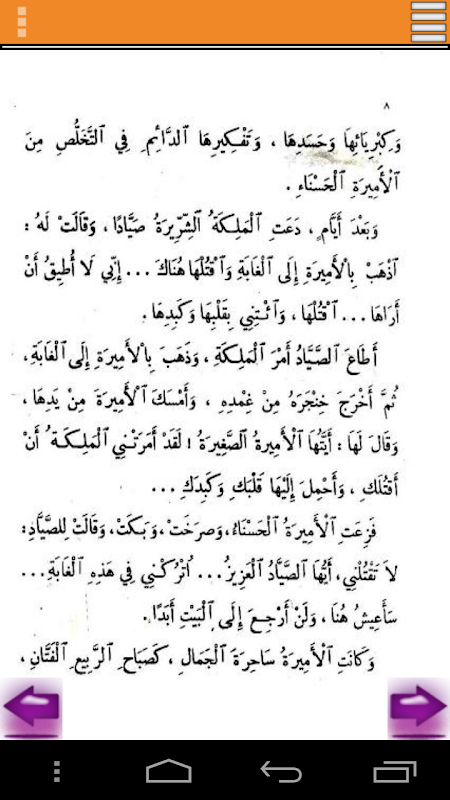 ٨
وَكِبْرِيَائِهَا وَحَسَدِهَا ، وَتَفْكِيرِهَا ٱلدَّائِمِ فِي ٱلتَّخَلُّصِ مِنَ
ٱلْأَمِيرَةِ ٱلْحَسْنَاءِ .
وَبَعْدَ أَيَّامٍ ، دَعَتِ ٱلْمَلِكَةُ ٱلشِّرِّيرَةُ صَيَّادًا ، وَقَالَتْ لَهُ :
اَذْهَبْ بِٱلْأَمِيرَةِ إِلَى ٱلْغَابَةِ وَٱقْتُلْهَا هُنَاكَ ... إِنِّي لَا أُطِيقُ أَنْ
أَرَاهَا ... اُقْتُلْهَا ، وَٱئْتِنِي بِقَلْبِهَا وَكَبِدِهَا .
أَطَاعَ ٱلصَّيَّادُ أَمْرَ ٱلْمَلِكَةِ ، وَذَهَبَ بِٱلْأَمِيرَةِ إِلَى ٱلْغَابَةِ ،
ثُمَّ أَخْرَجَ خِنْجَرَهُ مِنْ غِمْدِهِ ، وَأَمْسَكَ ٱلْأَمِيرَةَ مِنْ يَدِهَا ،
وَقَالَ لَهَا : أَيَّتُهَا ٱلْأَمِيرَةُ ٱلصَّغِيرَةُ ! لَقَدْ أَمَرَتْنِي ٱلْمَلِكَةُ أَنْ
أَقْتُلَكِ ، وَأَحْمِلَ إِلَيْهَا قَلْبَكِ وَكَبِدَكِ ...
فَزِعَتِ ٱلْأَمِيرَةُ ٱلْحَسْنَاءُ ، وَصَرَخَتْ ، وَبَكَتْ ، وَقَالَتْ لِلصَّيَّادِ :
لَا تَقْتُلْنِي ، أَيُّهَا ٱلصَّيَّادُ ٱلْعَزِيزُ ... اُتْرُكْنِي فِي هَذِهِ ٱلْغَابَةِ ...
سَأَعِيشُ هُنَا ، وَلَنْ أَرْجِعَ إِلَى ٱلْبَيْتِ أَبَدًا .
وَكَانَتِ ٱلْأَمِيرَةُ سَاحِرَةَ ٱلْجَمَالِ ، كَصَبَاحِ ٱلرَّبِيعِ ٱلْفَتَّانِ ،